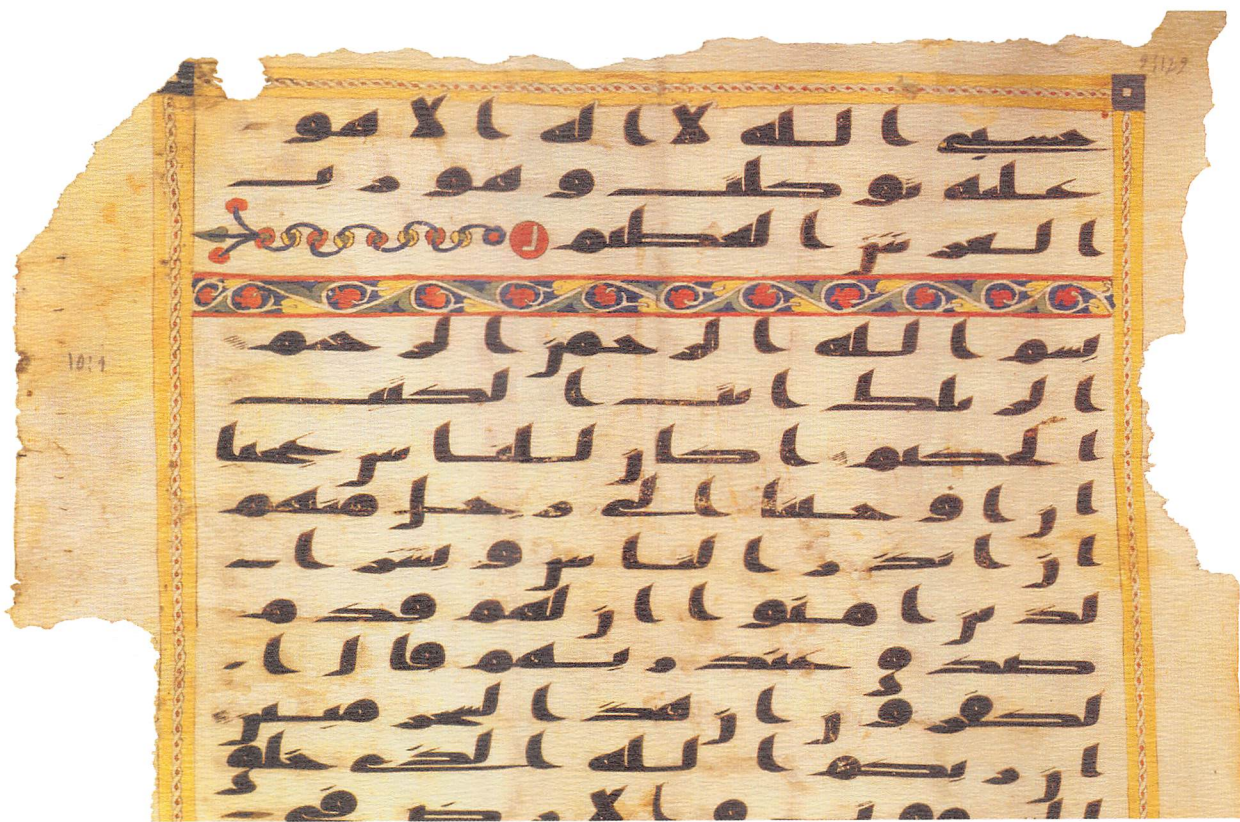 9:129
حسبي الله لا اله الا هو
عليه توكلت وهو رب
العرش العظيم
بسم الله الرحمن الرحيم
10:1
الر تلك ايت الكتب
الحكيم اكان للناس عجبا
ان اوحينا الى رجل منهم
ان انذر الناس وبشر ا
لذين امنوا ان لهم قدم
صدق عند ربهم قال ا
لكفرون ان هذا لسحر مبين
ان ربكم الله الذي خلق